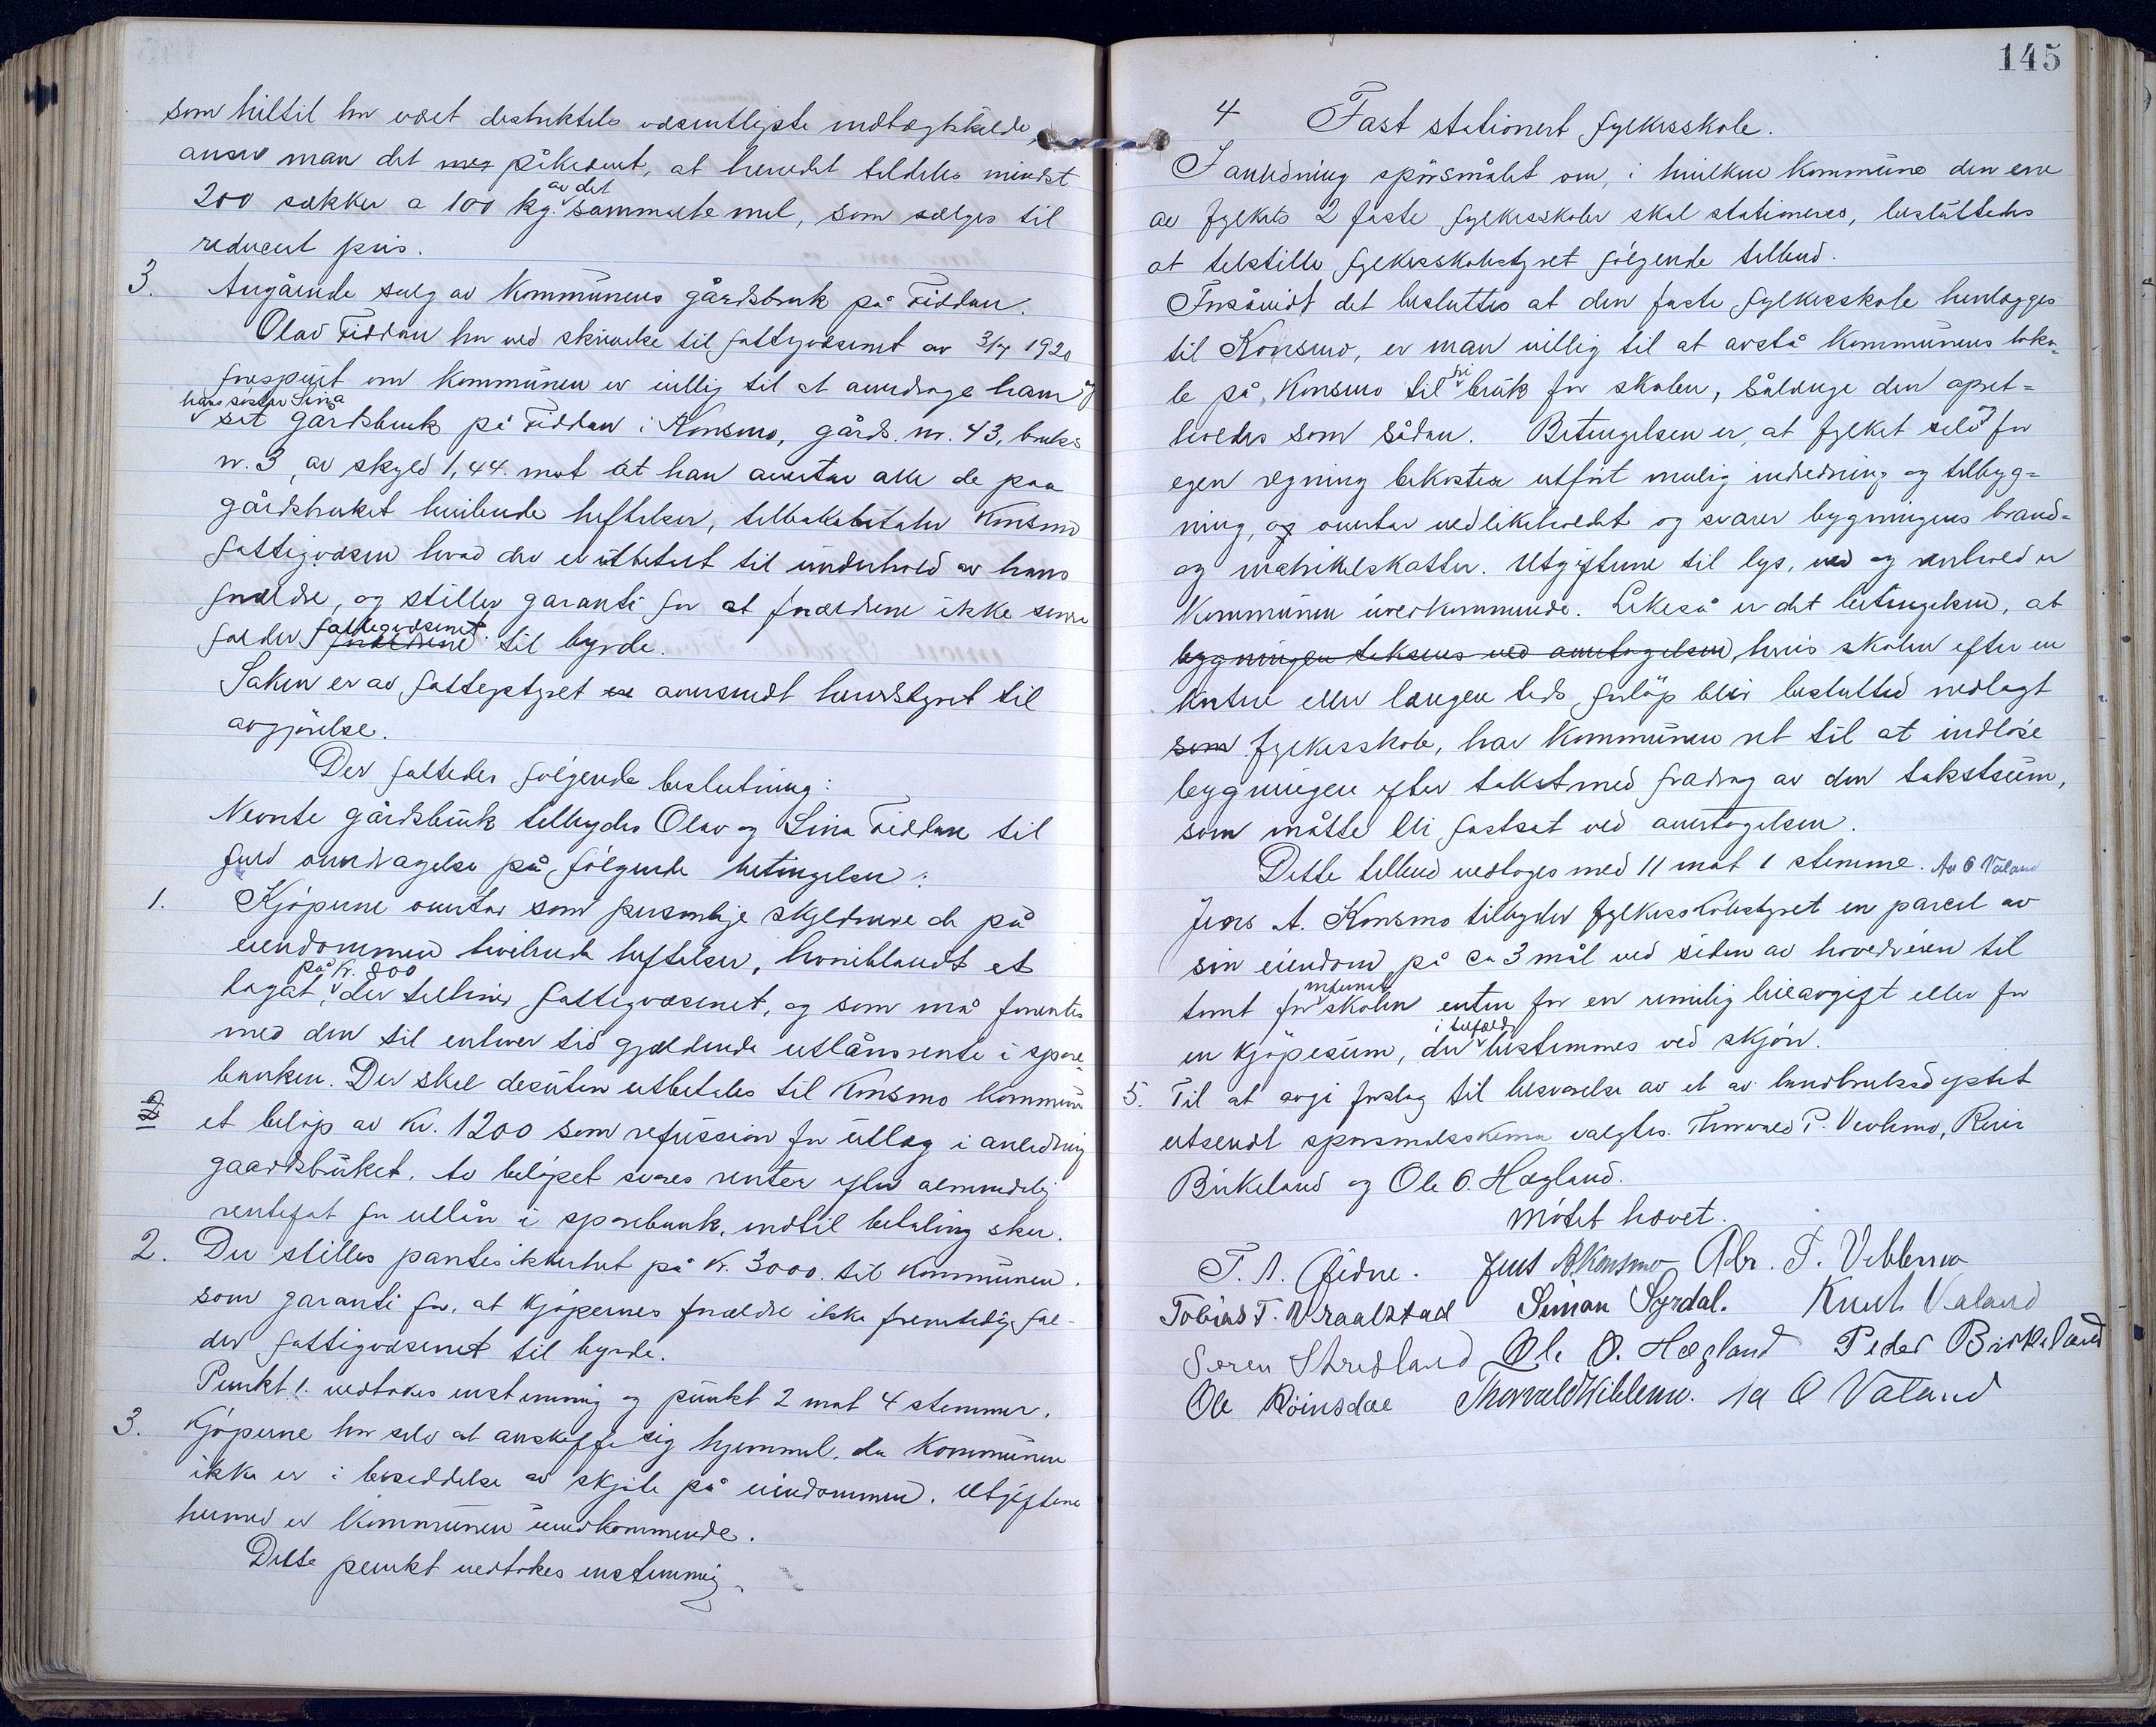 som hittil har været destriktets væsentligste indtægtskilde,
anser man det meg påkrævet, at herredet tildeles mindst
200 sækker a 100 kg. av det sammalte mel, som sælges til
reducert pris.
3. Angående salg av kommunens gårdsbruk på Fiddan.
Olav Fiddan har ved skrivelse til fattigvæsenet av 3/7 1920
forespurt om kommunen er villig til at avendrage ham og
hans søster Sina
sit gårdsbruk på Fiddan i Konsmo, gårds. nr. 43, bruks
nr. 3, av skyld 1,44. mot at han overtar alle de paa
gårdsbruket hvilende heftelser, tilbakebetaler Konsmo
fattigvæsen hvad der er utbetalt til underhold av hans
forældre, og stiller garanti for at forældrene ikke senere
falder fattigvæsenet forældrene til byrde.
Saken er av fattigstyret er oversendt herredstyret til
avgjörelse.
Der fattedes følgende beslutning:
Nevnte gårdsbruk tilbydes Olav og Sina Fiddan til
fuld overdragelse på følgende betingelser:
1. Kjøperne overtar som personlige skyldnere de på
eiendommen hvilende heftelser, hvoriblandt et
på kr. 800
legat, der tilhører fattigvæsenet, og som må forrentes
med den til enhver tid gjældende utlånsrente i spare-
banken. Der skal desuten utbetales til Konsmo kommune
2) et beløp av kr. 1200 som refusion for utlæg i anledning
gaardsbruket. Av beløpet svares renter efter almindelig
rentefot for utlån i sparebank, indtil betaling sker.
2. Der stilles pantesikkerhet på kr. 3000. til kommunen.
som garanti for, at kjøpernes forældre ikke fremtidig fal-
der fattigvæsenet til byrde.
Punkt 1. vedtokes enstemmig og punkt 2 mot 4 stemmer.
3. Kjøperne har selv at anskaffe sig hjemmel, da kommunen
ikke er i besiddelse av skjøte på eiendommen. Utgiftene
herved er kommunen uvedkommende.
Dette punkt vedtokes enstemmig.
145
4 Fast stationert fylkesskole.
I anledning spørsmålet om, i hvilken kommune den ene
av fylkets 2 faste fylkesskoler skal stationeres, besluttedes
at tilstille fylkesskolestyret følgende tilbud.
Forsåvidt det besluttes at den faste fylkesskole henlægges
til Konsmo, er man villig til at avstå kommunens loka-
le på Konsmo til fri bruk for skolen, sålænge den opret-
holdes som sådan. Betingelsen er, at fylket selv for
egen regning bekoster utført mulig indredning og tilbyg-
ning, og overtar vedlikeholdet og svarer bygningens brand-
og matrikelskatter. Utgiftene til lys, ved og renhold er
kommunen uvedkommende. Likeså er det betingelsen, at
bygningen takseres ved overtagelsen, hvis skolen efter en
kortere eller længere tids forløp blir besluttet nedlagt
som fylkesskole, har kommunen ret til at indløse
bygningen efter takst med fradrag av den takstsum,
som måtte bli fastsat ved overtagelsen.
Dette tilbud vedtoges med 11 mot 1 stemme. Aa O Våland
Jens A. Konsmo tilbyder fylkesskolestyret en parcel av
sin eiendom på ca 3 mål ved siden av hovedveien til
tomt for internat skolen enten for en rimelig leieavgift eller for
en kjøpesum, der i tilfælde bestemmes ved skjøn.
5. Til at avgi forslag til besvarelse av et av landbruksdeptet
utsendt spørsmålsskema valgtes. Thorvald P. Viblemo, Reier
Birkeland og Ole O. Hægland.
Møtet hævet.
T. A. Eidne. Jens A Konsmo Abr. T. Viblemo
Tobias T. Vraalstad Simon Syrdal. Knut Valand
Søren Stredland Ole O. Hægland Peder Birkeland
Ole Röinsdal Thorvald Wiblemo. Aa O Våland